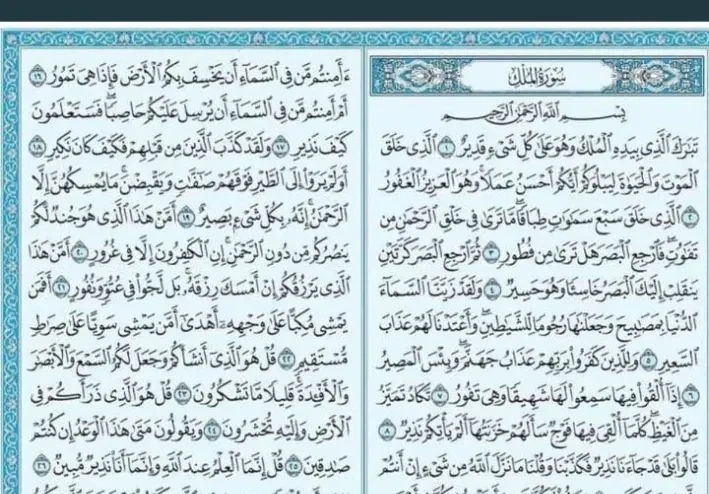 سُورَةُ الْمُلْكِ
بِسْمِ اللَّهِ الرَّحْمَٰنِ الرَّحِيمِ
تَبَٰرَكَ ٱلَّذِى بِيَدِهِ ٱلْمُلْكُ وَهُوَ عَلَىٰ كُلِّ شَىْءٍ قَدِيرٌ ١ ٱلَّذِى خَلَقَ
ٱلْمَوْتَ وَٱلْحَيَوٰةَ لِيَبْلُوَكُمْ أَيُّكُمْ أَحْسَنُ عَمَلًا وَهُوَ ٱلْعَزِيزُ ٱلْغَفُورُ
٢ ٱلَّذِى خَلَقَ سَبْعَ سَمَٰوَٰتٍ طِبَاقًا مَّا تَرَىٰ فِى خَلْقِ ٱلرَّحْمَٰنِ مِن
تَفَٰوُتٍ فَٱرْجِعِ ٱلْبَصَرَ هَلْ تَرَىٰ مِن فُطُورٍ ٣ ثُمَّ ٱرْجِعِ ٱلْبَصَرَ كَرَّتَيْنِ
يَنقَلِبْ إِلَيْكَ ٱلْبَصَرُ خَاسِئًا وَهُوَ حَسِيرٌ ٤ وَلَقَدْ زَيَّنَّا ٱلسَّمَآءَ
ٱلدُّنْيَا بِمَصَٰبِيحَ وَجَعَلْنَٰهَا رُجُومًا لِّلشَّيَٰطِينِ وَأَعْتَدْنَا لَهُمْ عَذَابَ
ٱلسَّعِيرِ ٥ وَلِلَّذِينَ كَفَرُوا۟ بِرَبِّهِمْ عَذَابُ جَهَنَّمَ وَبِئْسَ ٱلْمَصِيرُ
٦ إِذَآ أُلْقُوا۟ فِيهَا سَمِعُوا۟ لَهَا شَهِيقًا وَهِىَ تَفُورُ ٧ تَكَادُ تَمَيَّزُ
مِنَ ٱلْغَيْظِ كُلَّمَآ أُلْقِىَ فِيهَا فَوْجٌ سَأَلَهُمْ خَزَنَتُهَآ أَلَمْ يَأْتِكُمْ نَذِيرٌ ٨
قَالُوا۟ بَلَىٰ قَدْ جَآءَنَا نَذِيرٌ فَكَذَّبْنَا وَقُلْنَا مَا نَزَّلَ ٱللَّهُ مِن شَىْءٍ إِنْ أَنتُمْ
ءَأَمِنتُم مَّن فِى ٱلسَّمَآءِ أَن يَخْسِفَ بِكُمُ ٱلْأَرْضَ فَإِذَا هِىَ تَمُورُ ١٦
أَمْ أَمِنتُم مَّن فِى ٱلسَّمَآءِ أَن يُرْسِلَ عَلَيْكُمْ حَاصِبًا فَسَتَعْلَمُونَ
كَيْفَ نَذِيرِ ١٧ وَلَقَدْ كَذَّبَ ٱلَّذِينَ مِن قَبْلِهِمْ فَكَيْفَ كَانَ نَكِيرِ ١٨
أَوَلَمْ يَرَوْا۟ إِلَى ٱلطَّيْرِ فَوْقَهُمْ صَٰٓفَّٰتٍ وَيَقْبِضْنَ مَا يُمْسِكُهُنَّ إِلَّا
ٱلرَّحْمَٰنُ إِنَّهُۥ بِكُلِّ شَىْءٍۭ بَصِيرٌ ١٩ أَمَّنْ هَٰذَا ٱلَّذِى هُوَ جُندٌ لَّكُمْ
يَنصُرُكُم مِّن دُونِ ٱلرَّحْمَٰنِ إِنِ ٱلْكَٰفِرُونَ إِلَّا فِى غُرُورٍ ٢٠ أَمَّنْ هَٰذَا
ٱلَّذِى يَرْزُقُكُمْ إِنْ أَمْسَكَ رِزْقَهُۥ بَل لَّجُّوا۟ فِى عُتُوٍّ وَنُفُورٍ ٢١ أَفَمَن
يَمْشِى مُكِبًّا عَلَىٰ وَجْهِهِۦٓ أَهْدَىٰٓ أَمَّن يَمْشِى سَوِيًّا عَلَىٰ صِرَٰطٍ
مُّسْتَقِيمٍ ٢٢ قُلْ هُوَ ٱلَّذِىٓ أَنشَأَكُمْ وَجَعَلَ لَكُمُ ٱلسَّمْعَ وَٱلْأَبْصَٰرَ
وَٱلْأَفْـِٔدَةَ قَلِيلًا مَّا تَشْكُرُونَ ٢٣ قُلْ هُوَ ٱلَّذِى ذَرَأَكُمْ فِى
ٱلْأَرْضِ وَإِلَيْهِ تُحْشَرُونَ ٢٤ وَيَقُولُونَ مَتَىٰ هَٰذَا ٱلْوَعْدُ إِن كُنتُمْ
صَٰدِقِينَ ٢٥ قُلْ إِنَّمَا ٱلْعِلْمُ عِندَ ٱللَّهِ وَإِنَّمَآ أَنَا۠ نَذِيرٌ مُّبِينٌ ٢٦